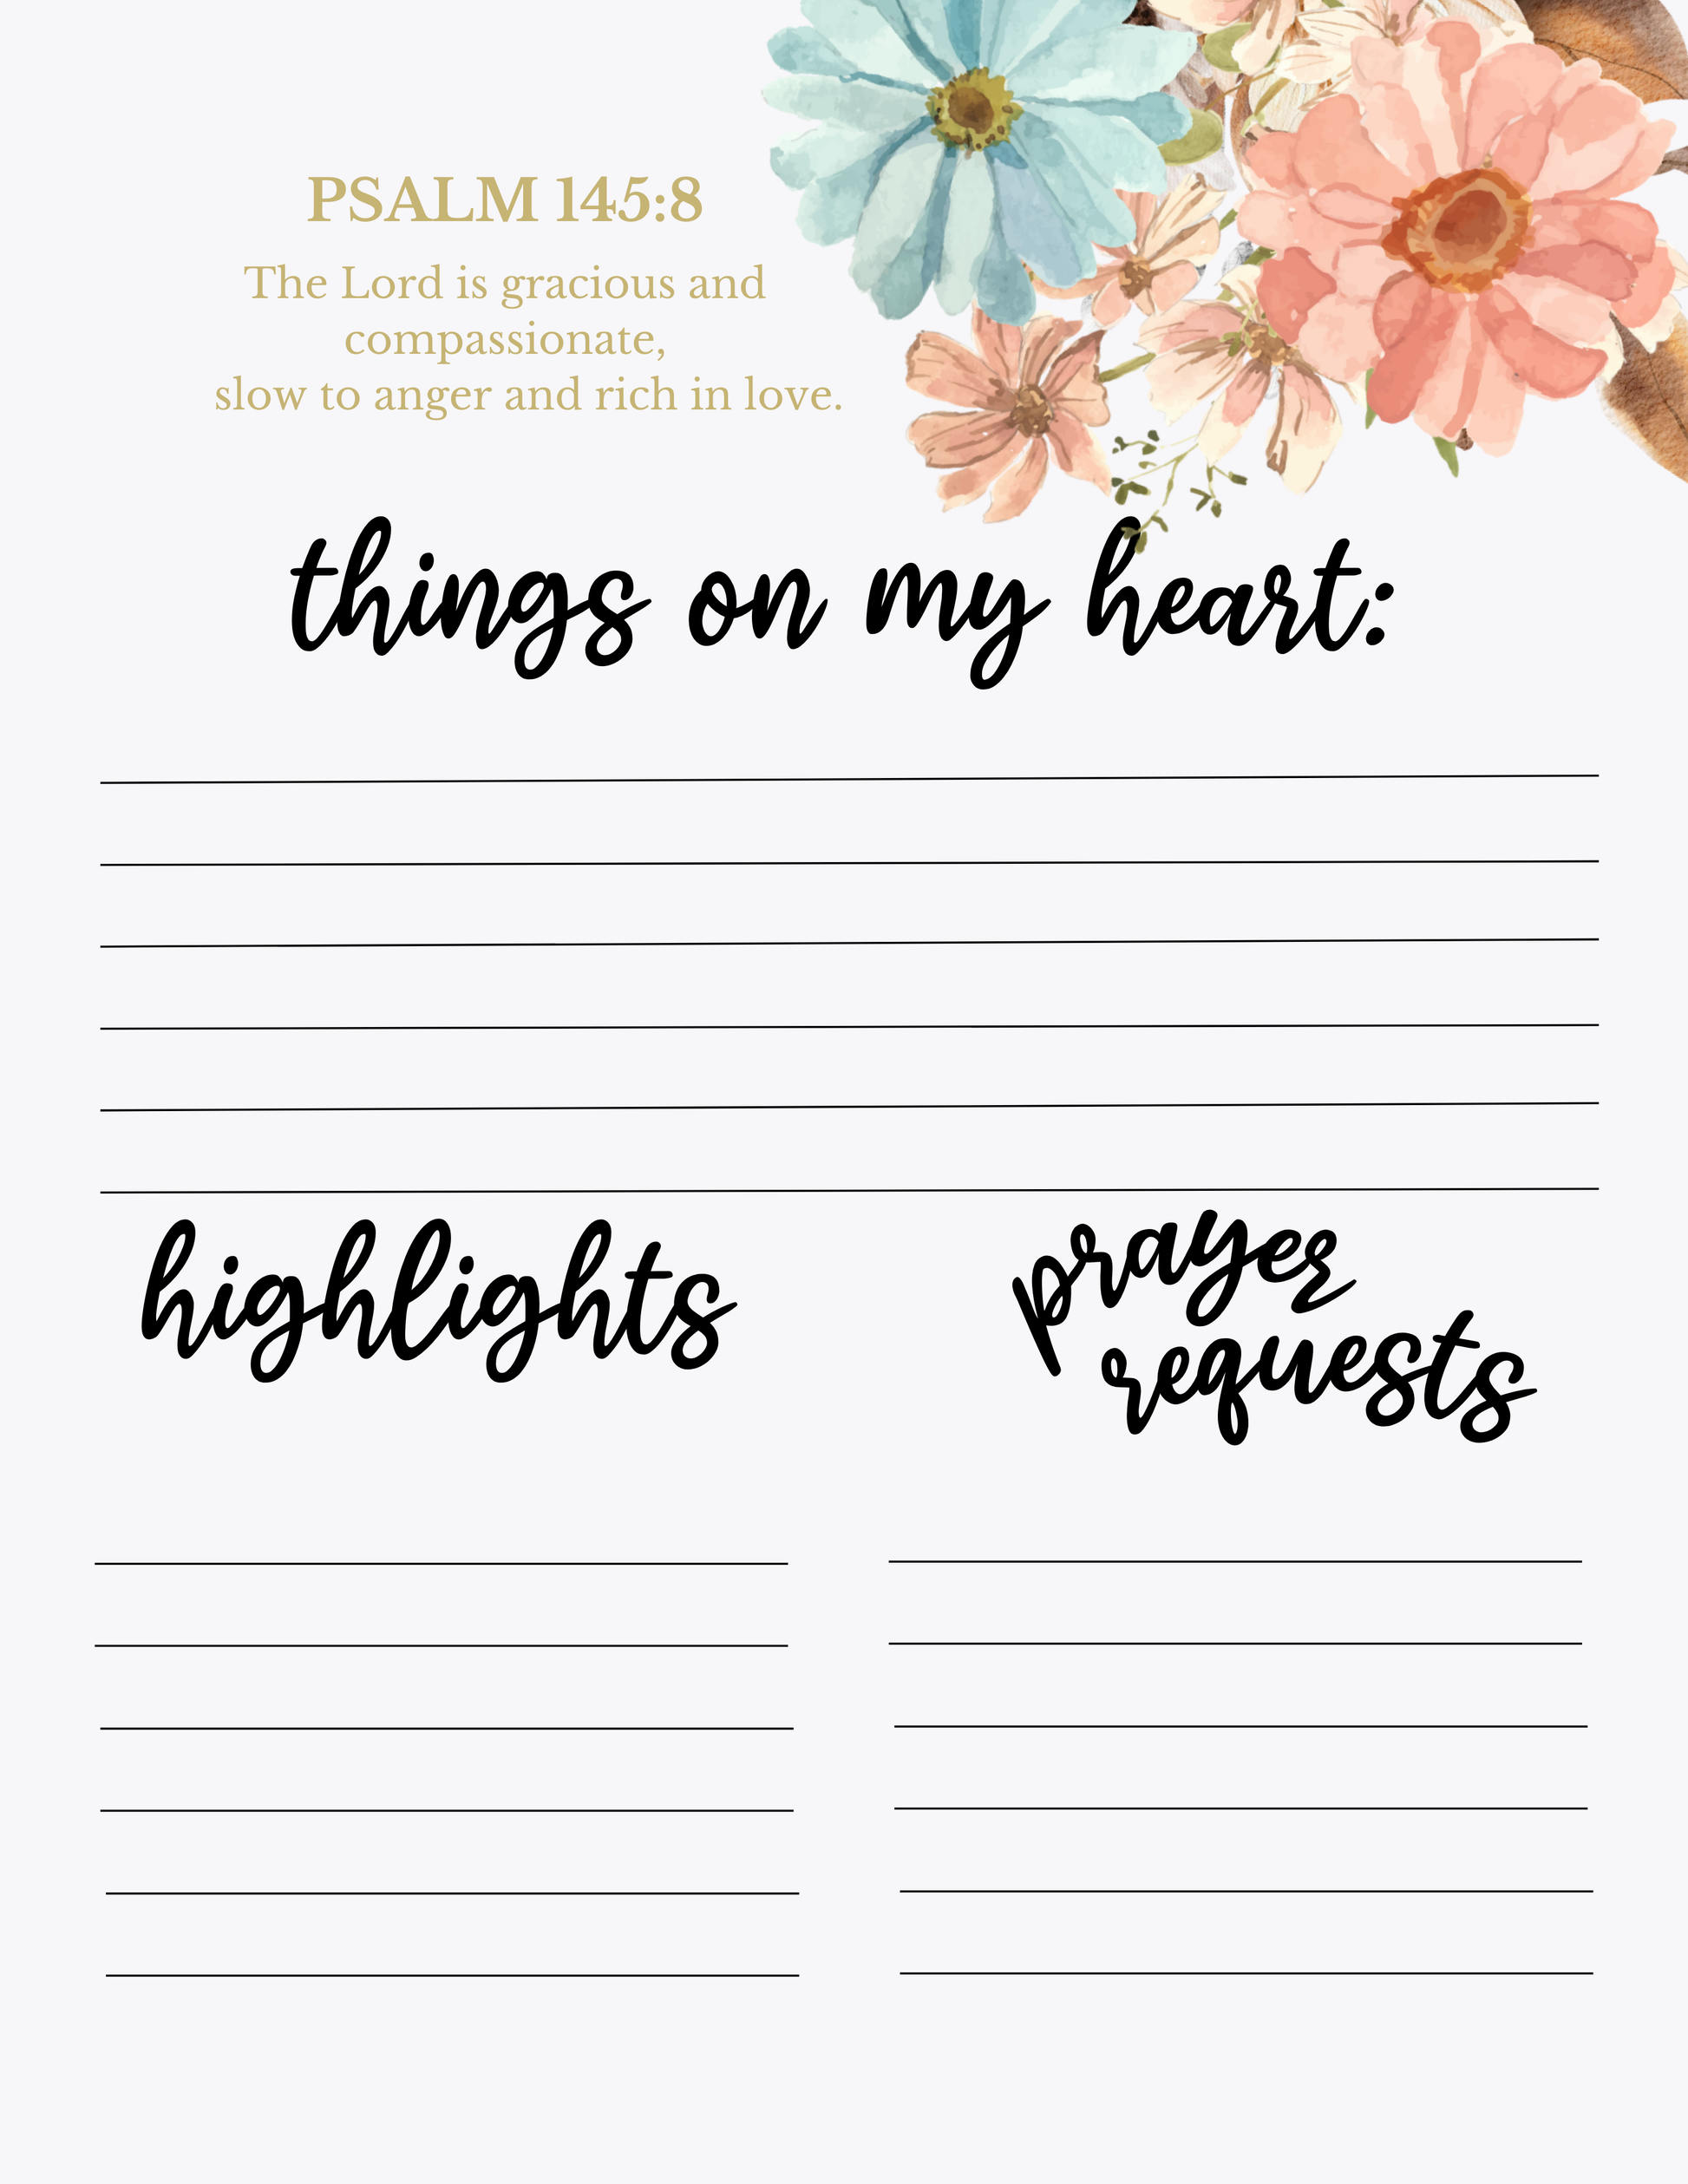 PSALM 145:8
The Lord is gracious and
compassionate,
slow to anger and rich in love.
things on my heart:
highlights
prayer
requests